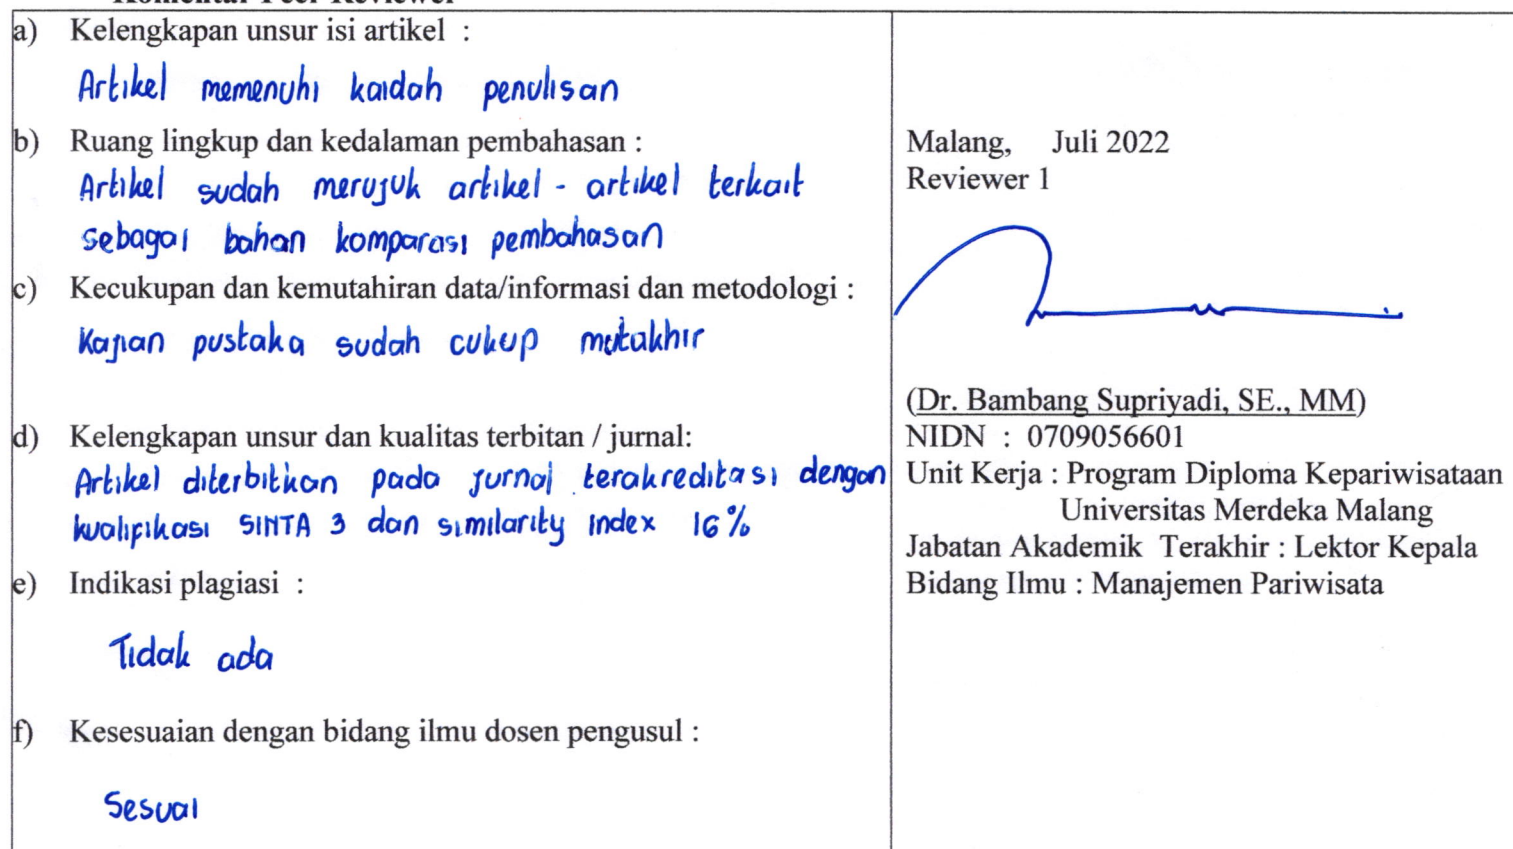 Komentar Peer Reviewer
a) Kelengkapan unsur isi artikel :
Artikel memenuhi kaidah penulisan
b) Ruang lingkup dan kedalaman pembahasan :
Artikel sudah merujuk artikel - artikel terkait
sebagai bahan komparasi pembahasan
c) Kecukupan dan kemutahiran data/informasi dan metodologi :
Kajian pustaka sudah cukup mutakhir
d) Kelengkapan unsur dan kualitas terbitan / jurnal:
Artikel diterbitkan pada jurnal terakreditasi dengan
kualifikasi SINTA 3 dan similarity index 16%
e) Indikasi plagiasi :
Tidak ada
f) Kesesuaian dengan bidang ilmu dosen pengusul :
Sesuai
Malang, Juli 2022
Reviewer 1
(Dr. Bambang Supriyadi, SE., MM)
NIDN : 0709056601
Unit Kerja : Program Diploma Kepariwisataan
Universitas Merdeka Malang
Jabatan Akademik Terakhir : Lektor Kepala
Bidang Ilmu : Manajemen Pariwisata